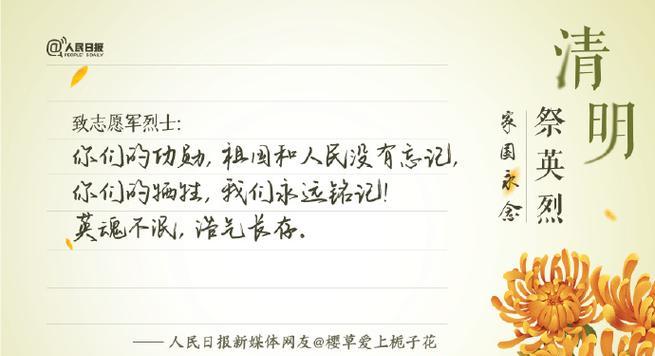 @人民日报
PEOPLE'S DAILY
致志愿军烈士:
你们的功勋,祖国和人民没有忘记,
你们的牺牲,我们永远铭记!
英魂不泯,浩气长存.
—— 人民日报新媒体网友@樱草爱上栀子花
清明
祭英烈
家国永念